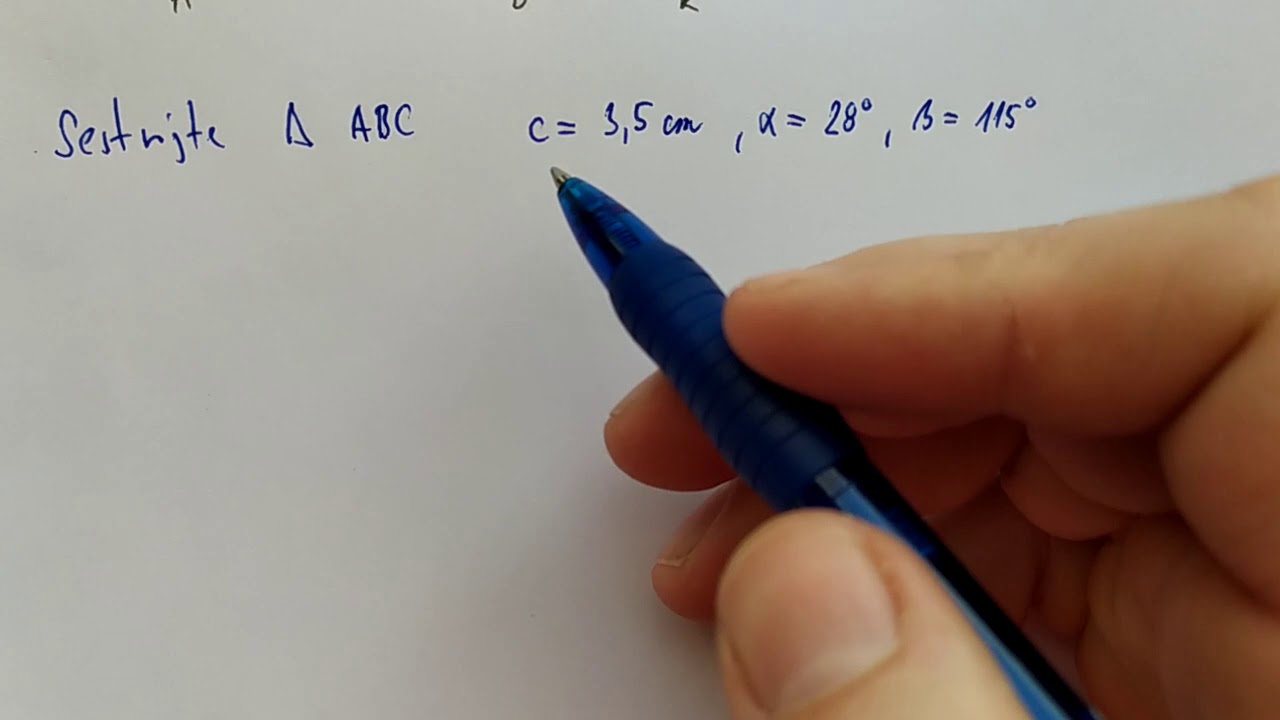 Sestrojte Δ ABC c = 3,5 cm , α = 28° , β = 115°